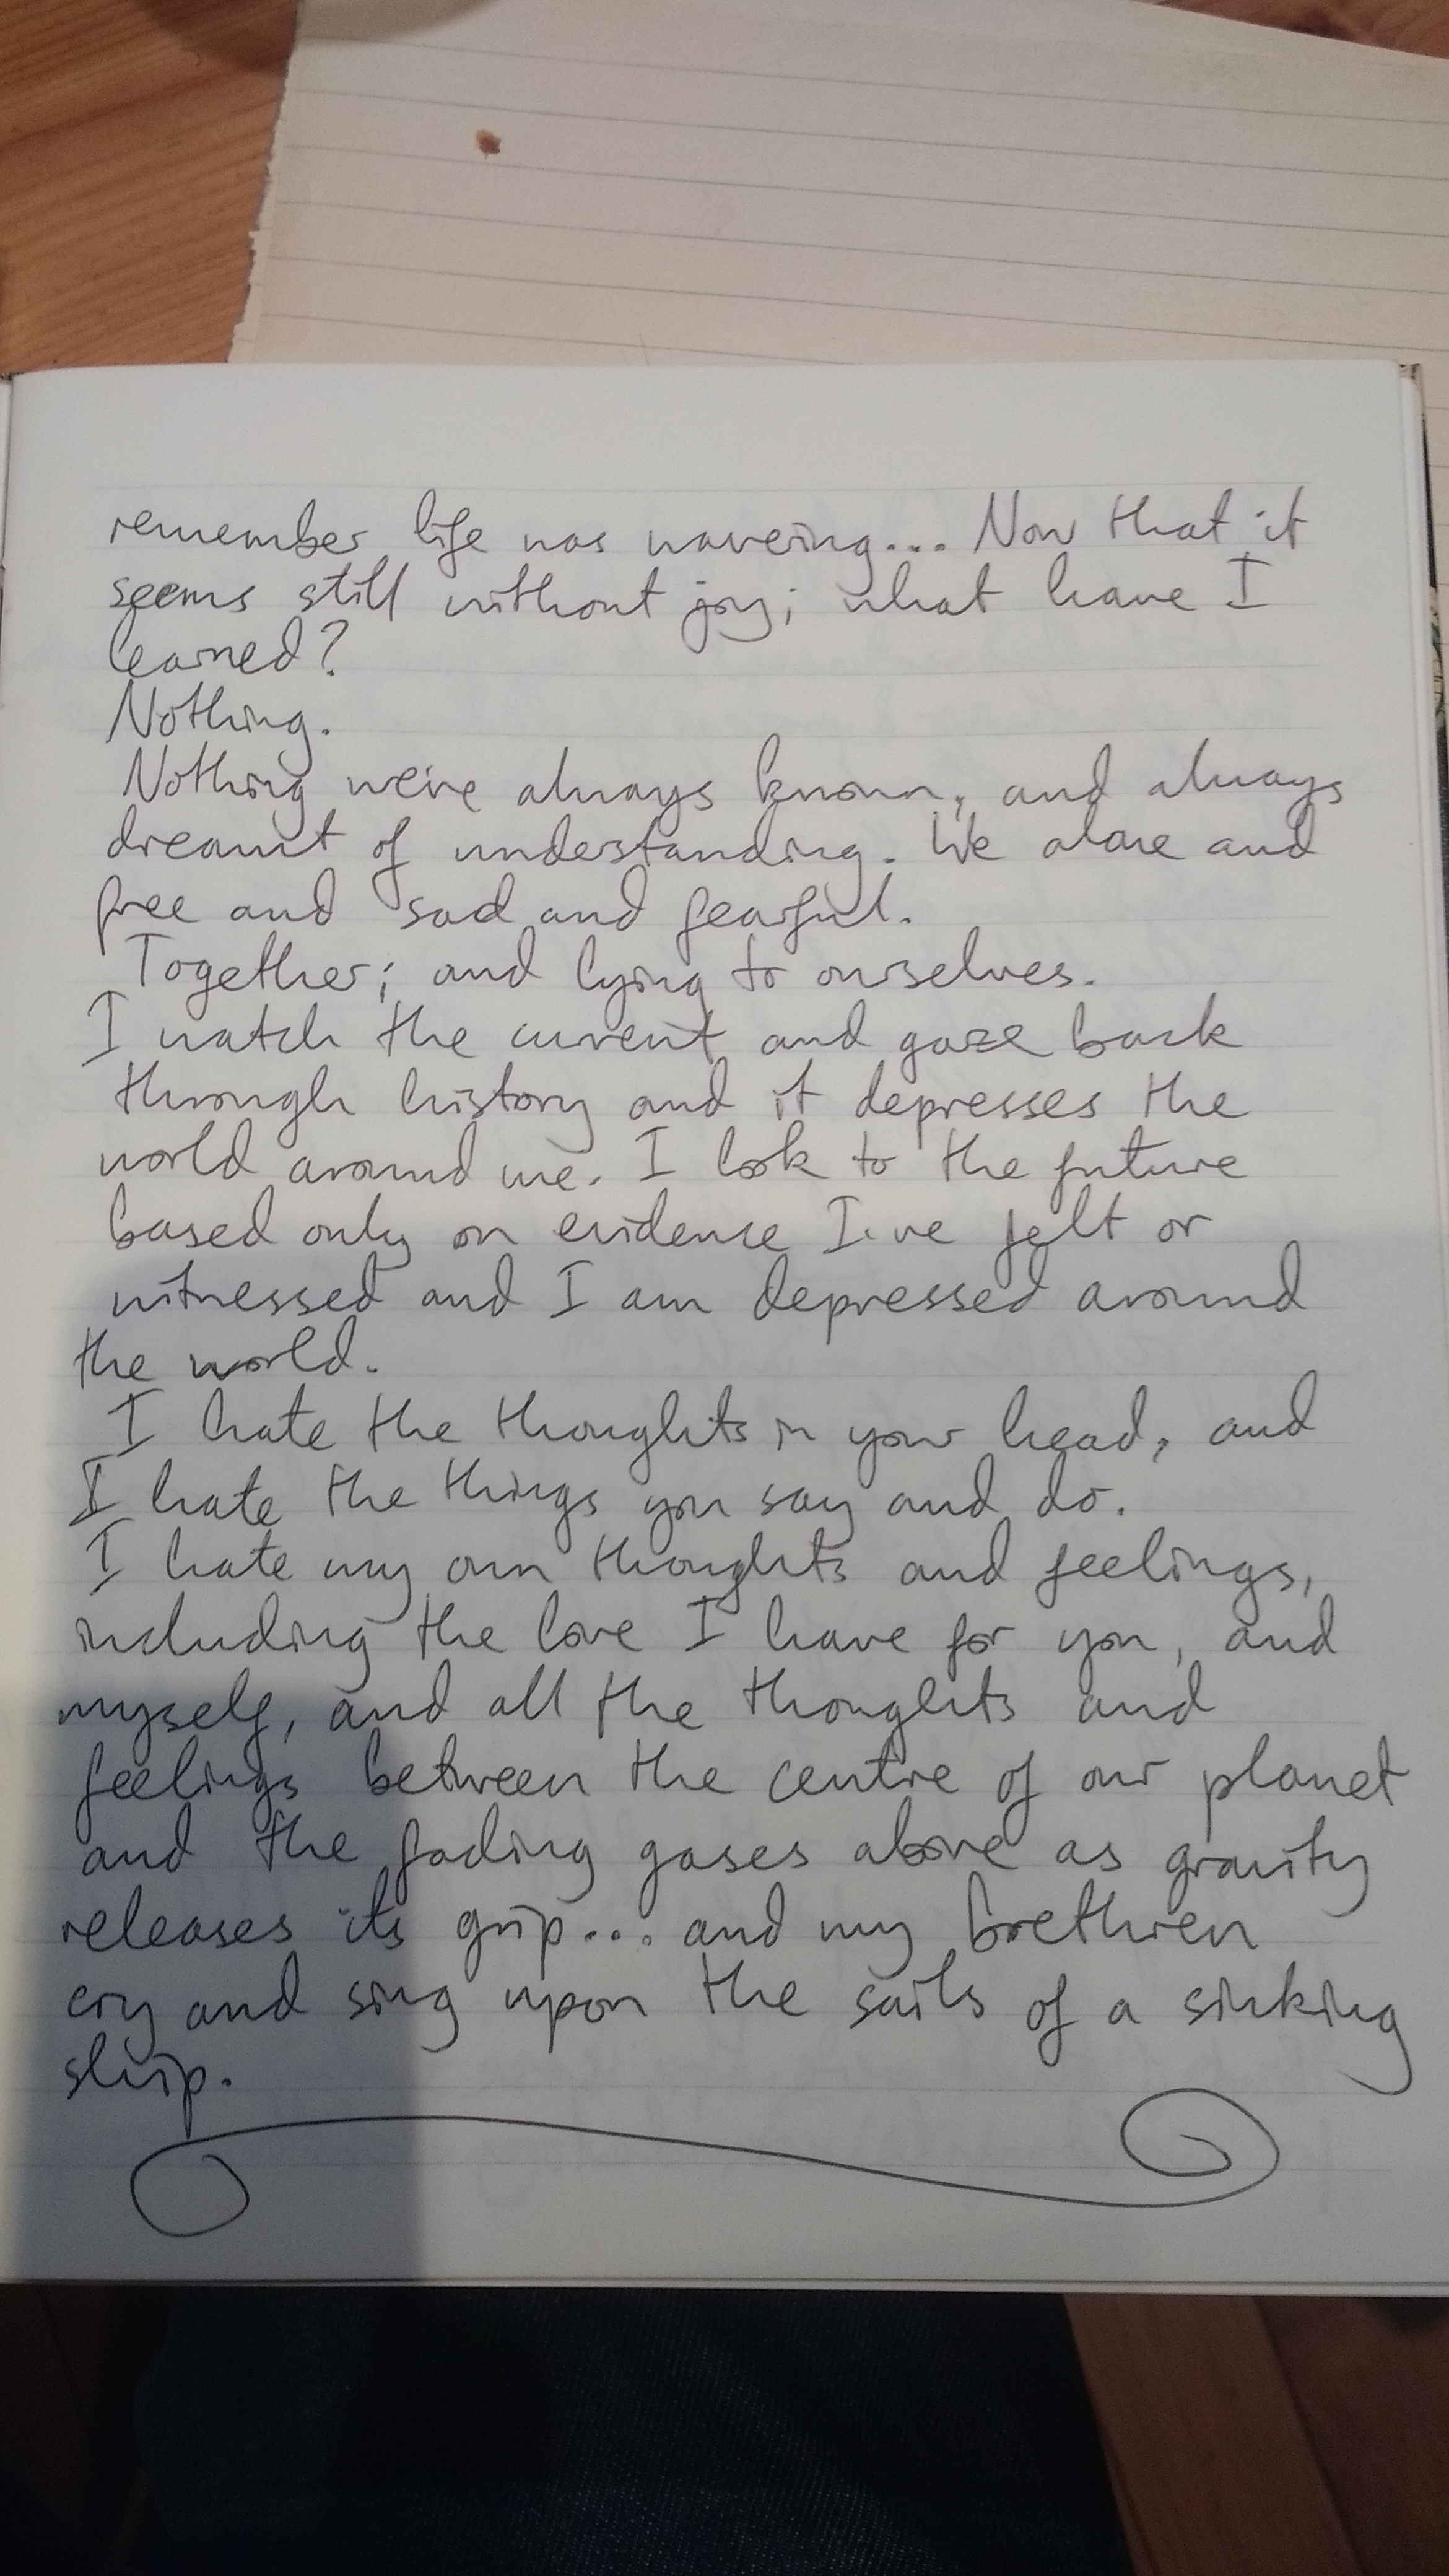 remember life was wavering... Now that it
seems still without joy; what have I
learned?
Nothing.
Nothing we've always known, and always
dreamt of understanding. We alone and
free and sad and fearful.
Together; and lying to ourselves.
I watch the current and gaze back
through history and it depresses the
world around me. I look to the future
based only on evidence I've felt or
witnessed and I am depressed around
the world.
I hate the thoughts in your head, and
I hate the things you say and do.
I hate my own thoughts and feelings,
including the love I have for you, and
myself, and all the thoughts and
feelings between the centre of our planet
and the fading gases above as gravity
releases its grip... and my brethren
cry and sing upon the sails of a sinking
ship.